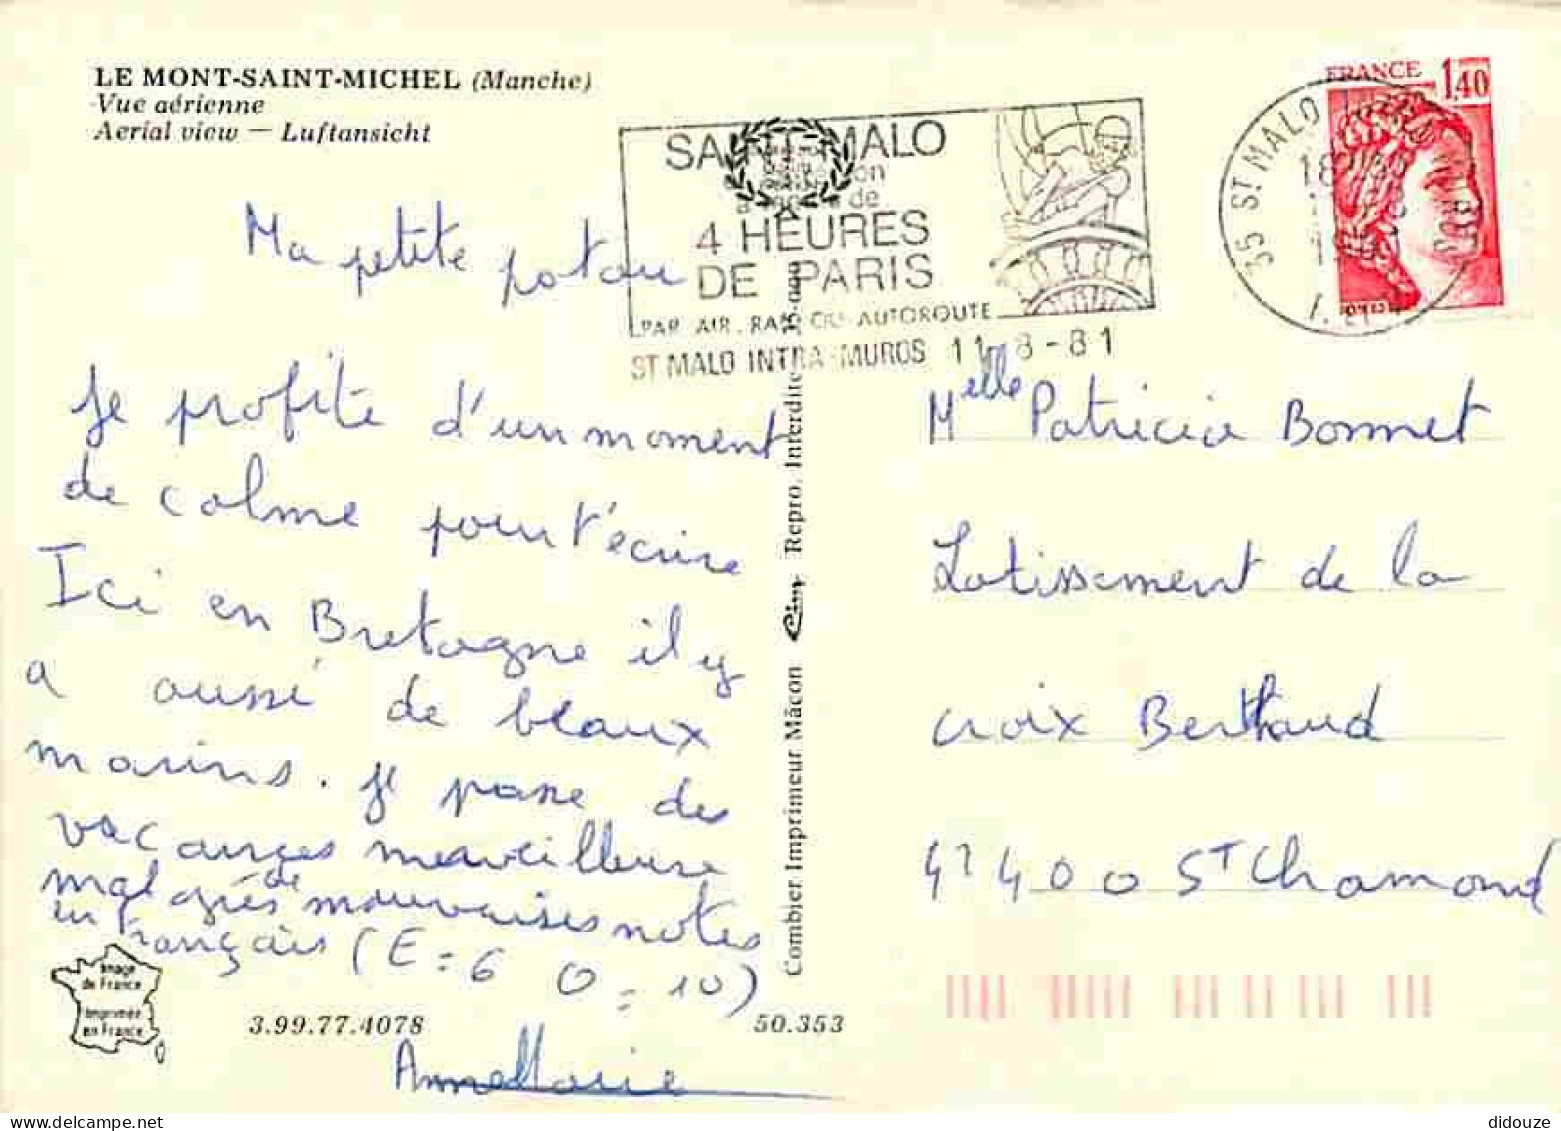 LE MONT-SAINT-MICHEL (Manche)
Vue aérienne
Aerial view — Luftansicht
SAINT-MALO
4 HEURES
DE PARIS
PAR AIR. RAIL OU AUTOROUTE
ST MALO INTRA-MUROS 11-8-81
35 ST MALO
FRANCE 1,40
Ma petite potau
Je profite d'un moment
de calme pour t'écrire
Ici en Bretagne il y
a aussi de beaux
marins. Je passe des
vacances merveilleuse
malgrés de mauvaises notes
en français (E = 6 O = 10)
AnneMarie
Melle Patricia Bonnet
Lotissement de la
croix Berthaud
42400 ST Chamond
Combier Imprimeur Mâcon Cim Repro. Interdite
Image
de France
Imprimée
en France
3.99.77.4078
50.353
didouze